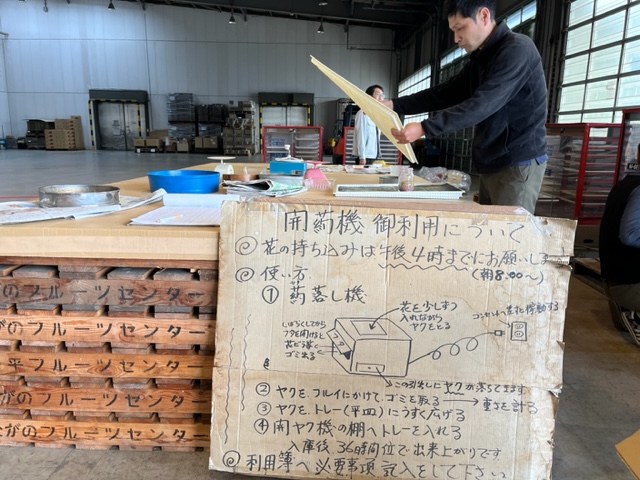 開葯機 御利用について
◎花の持ち込みは午後4時までにお願いしま
(朝8:00〜)
◎使い方
①葯落し機
花を少しずつ
入れながら
ヤクをとる
しばらくしてから
フタを開けると
ゴミ出る
この引出しにヤクが落ちてきます
②ヤクを、フルイにかけて、ゴミを取る→重さを計る
③ヤクを、トレー(平皿)にうすく広げる
④開ヤク機の棚へトレーを入れる
入庫後、36時間位で出来上がりです
◎利用簿へ必要事項気入をして下さい
がのフルーツセンター
がのフルーツセンター
平フルーツセンター
がのフルーツセンター
がのフルーツセンター